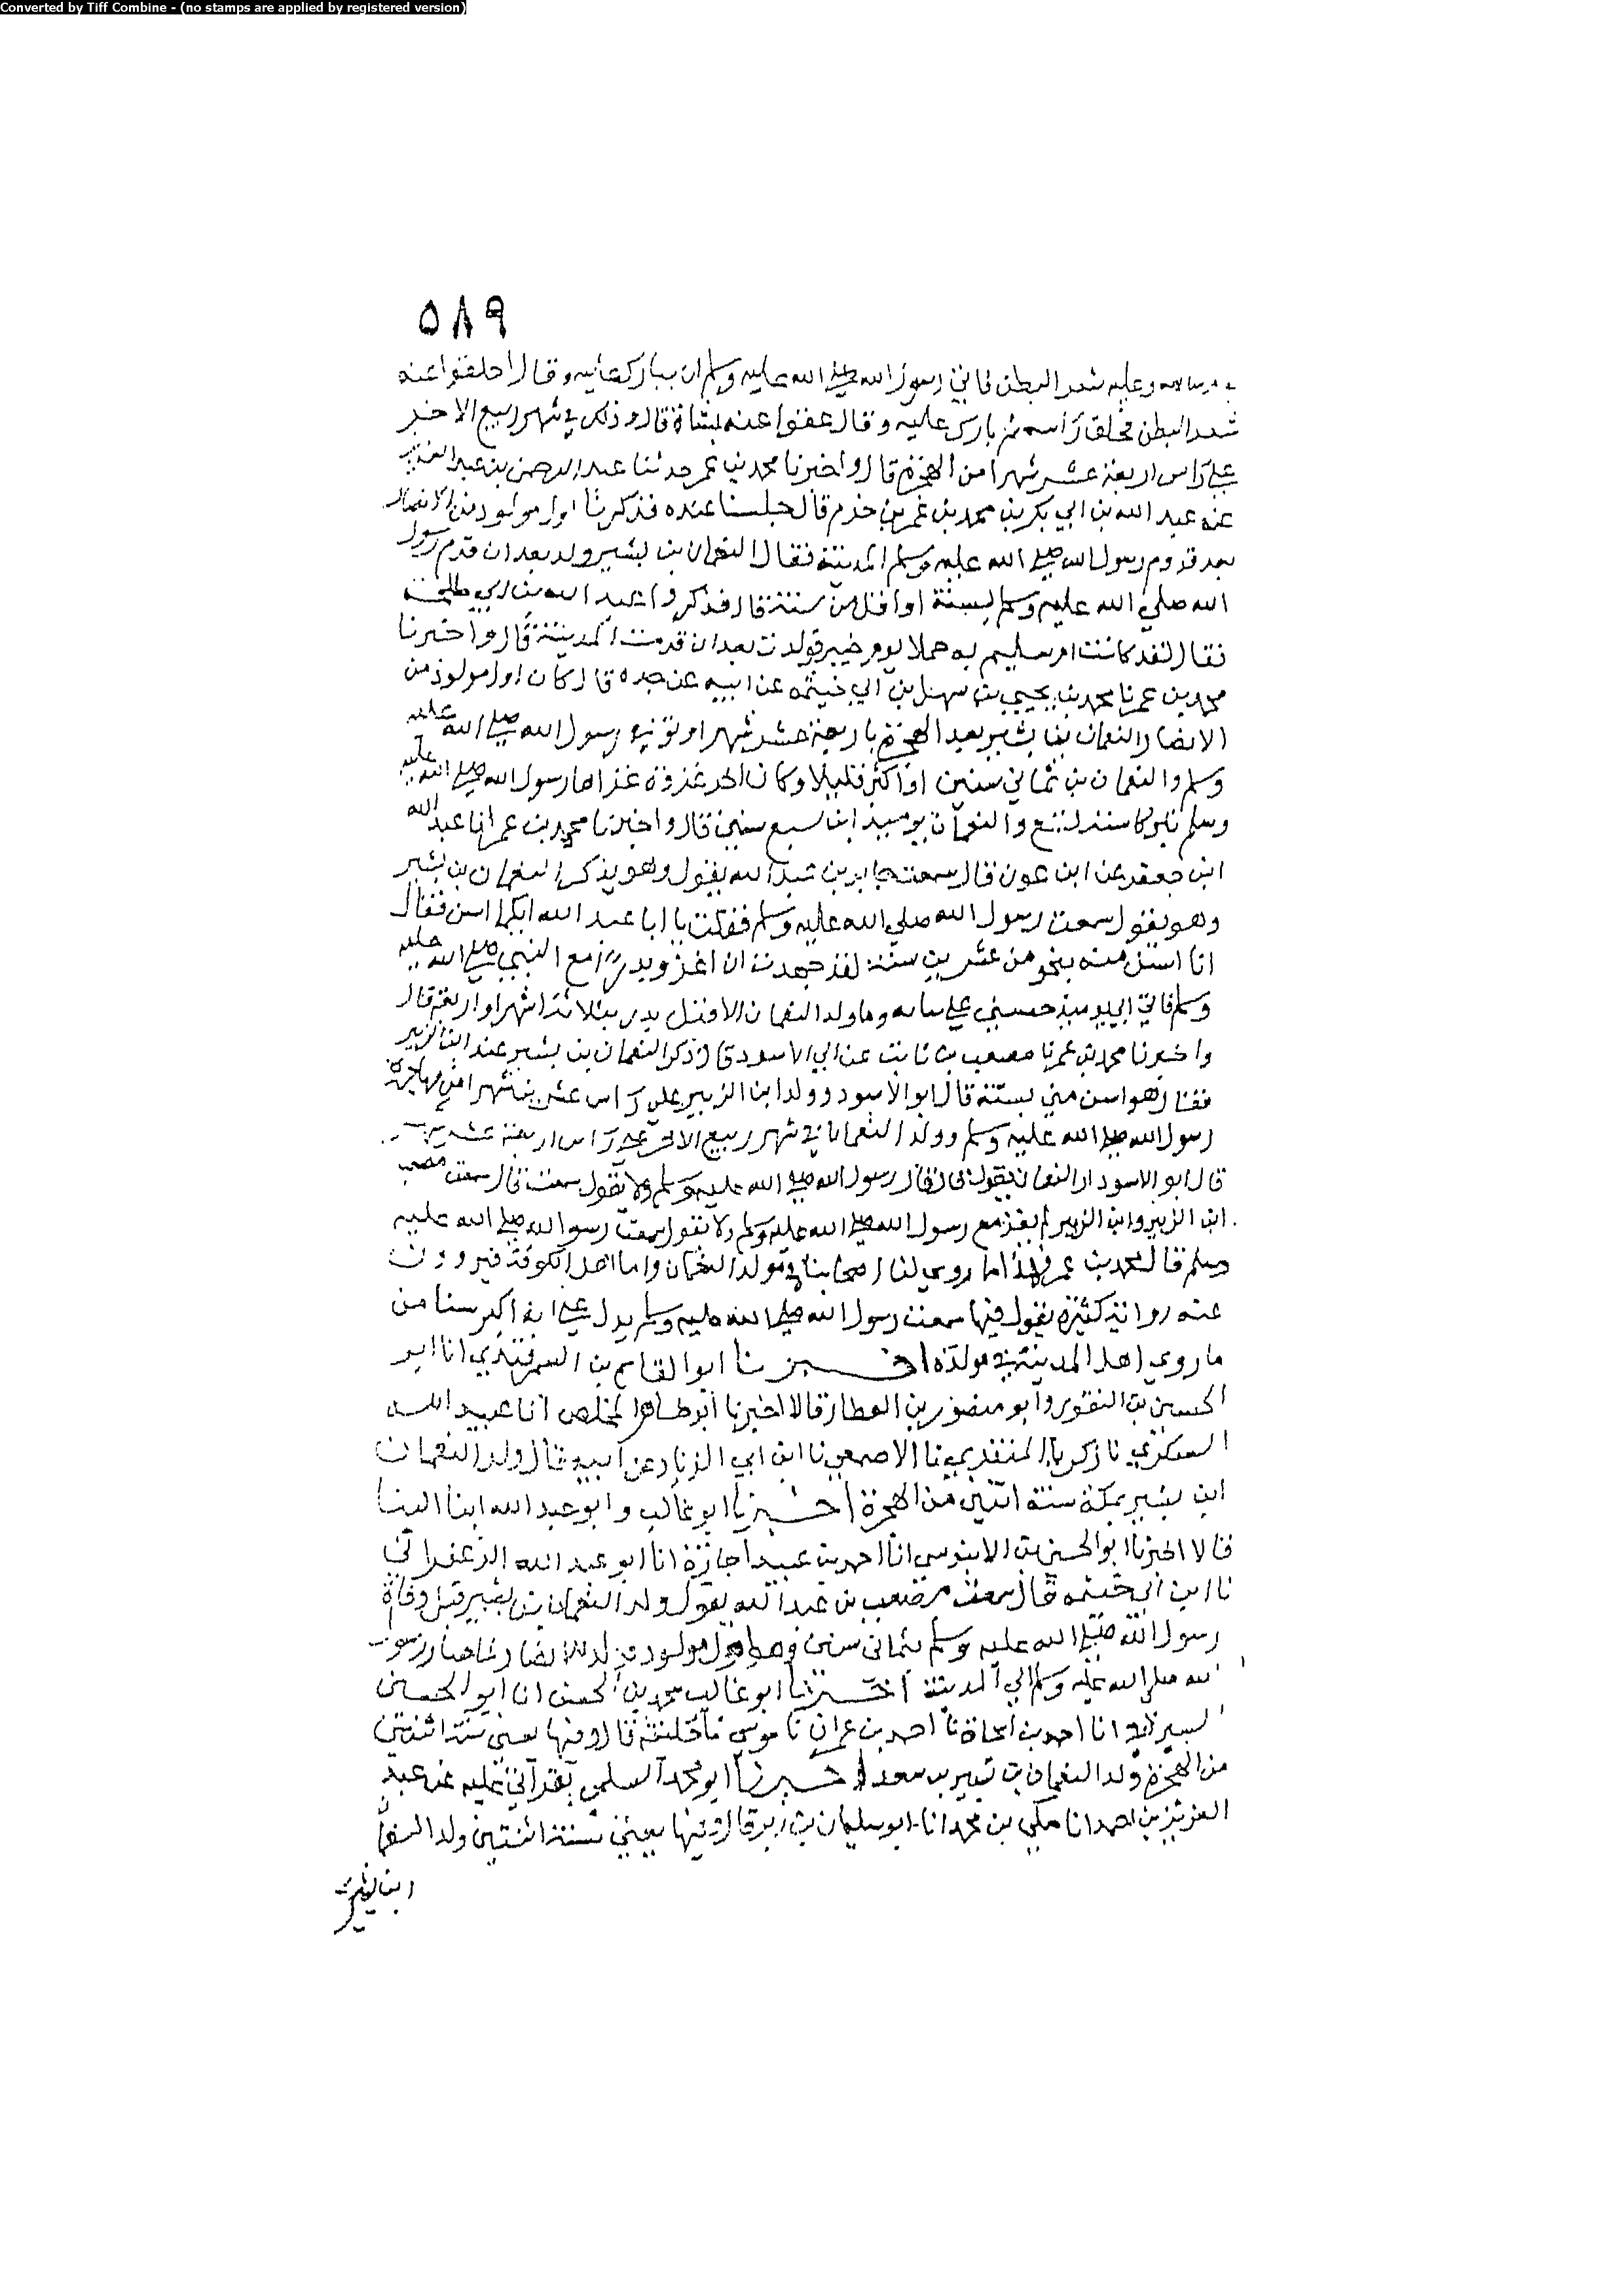 Converted by Tiff Combine - (no stamps are applied by registered version)
٥٨٩
وعليه شعر البطن فابى رسول الله صلى الله عليه وسلم ان يبارك عليه وقال احلقوا عنه
شعر البطن فحلق راسه ثم بارك عليه وقال عقوا عنه بشاة قال وذلك في شهر ربيع الاخر
على راس اربعة عشر شهرا من الهجرة قال واخبرنا محمد بن عمر حدثنا عبد الرحمن بن عبد العزيز
عن عبد الله بن ابي بكر بن محمد بن عمرو بن حزم قال جلسنا عنده فذكرنا اول مولود من الانصار
بعد قدوم رسول الله صلى الله عليه وسلم المدينة فقال النعمان بن بشير ولد بعد ان قدم رسول
الله صلى الله عليه وسلم لسنة او اقل من سنة قال فذكروا عبد الله بن ابي طلحة
فقال لقد كانت ام سليم به حملا يوم خيبر فولدت بعد ان قدمت المدينة قال واخبرنا
محمد بن عمر نا محمد بن يحيى بن سهل بن ابي خيثمه عن ابيه عن جده قال كان اول مولود من
الانصار النعمان بن بشير بعد الهجرة باربعة عشر شهرا وتوفي رسول الله صلى الله عليه
وسلم والنعمان بن ثماني سنين او اكثر قليلا وكان اخر غزوة غزاها رسول الله صلى الله عليه
وسلم تبوكا سنة تسع والنعمان يوميذ ابن سبع سنين قال واخبرنا محمد بن عمر انا عبد الله
ابن جعفر عن ابن عون قال سمعت جابر بن عبد الله يقول وهو يذكر النعمان بن بشير
وهو يقول سمعت رسول الله صلى الله عليه وسلم فقلت يا ابا عبد الله ايكما اسن فقال
انا اسن منه بنحو من عشرين سنة لقد جهدت ان اغزو بدرا مع النبي صلى الله عليه
وسلم فابى ابي يوميذ حبسني على بناته وما ولد النعمان الا قبل بدر بثلاثة اشهر او اربعة قال
واخبرنا محمد بن عمر نا مصعب بن ثابت عن ابي الاسود قال ذكر النعمان بن بشير عند ابن الزبير
فقال هو اسن مني بستة قال ابو الاسود وولد ابن الزبير على راس عشرين شهرا من مهاجرة
رسول الله صلى الله عليه وسلم وولد النعمان في شهر ربيع الاخر على راس اربعة عشر
قال ابو الاسود النعمان يقول قال رسول الله صلى الله عليه وسلم ولا يقول سمعت قال سمعت مصعب
ابن الزبير وابن الزبير لم يغز مع رسول الله صلى الله عليه وسلم ولا يقول سمعت رسول الله صلى الله عليه
وسلم قال محمد بن عمر فهذا ما روى لنا اصحابنا في مولد النعمان واما اهل الكوفة فيروون
عنه رواية كثيرة يقول فيها سمعت رسول الله صلى الله عليه وسلم يدل على انه اكبر سنا من
ما روى اهل المدينة في مولده اخبرنا ابو القاسم بن السمرقندي انا ابو
الحسين بن النقور وابو منصور بن العطار قالا اخبرنا ابو طاهر المخلص انا عبيد الله
السكري نا زكريا المنقري نا الاصمعي نا ابن ابي الزناد عن ابيه قال ولد النعمان
ابن بشير بمكة سنة اثنتين من الهجرة اخبرنا ابو غالب وابو عبد الله ابنا البنا
قالا اخبرنا ابو الحسين بن الابنوسي انا احمد بن عبيد اجازة انا ابو عبد الله الزعفراني
نا ابن ابي خيثمه قال سمعت مصعب بن عبد الله يقول ولد النعمان بن بشير قبل وفاة
رسول الله صلى الله عليه وسلم بثماني سنين وهو اول مولود ولد للانصار
الله صلى الله عليه وسلم الى المدينة اخبرنا ابو غالب محمد بن الحسن انا ابو الحسين
السيرافي انا احمد بن اسحاق نا احمد بن عمران نا موسى نا خليفة قال وفيها يعني سنة اثنتين
من الهجرة ولد النعمان بن بشير بن سعد اخبرنا ابو محمد السلمي بقراتي عليه عن عبد
العزيز بن احمد انا مكي بن محمد انا ابو سليمان بن زبر قال وفيها يعني سنة اثنتين ولد النعمان
ابن بشير